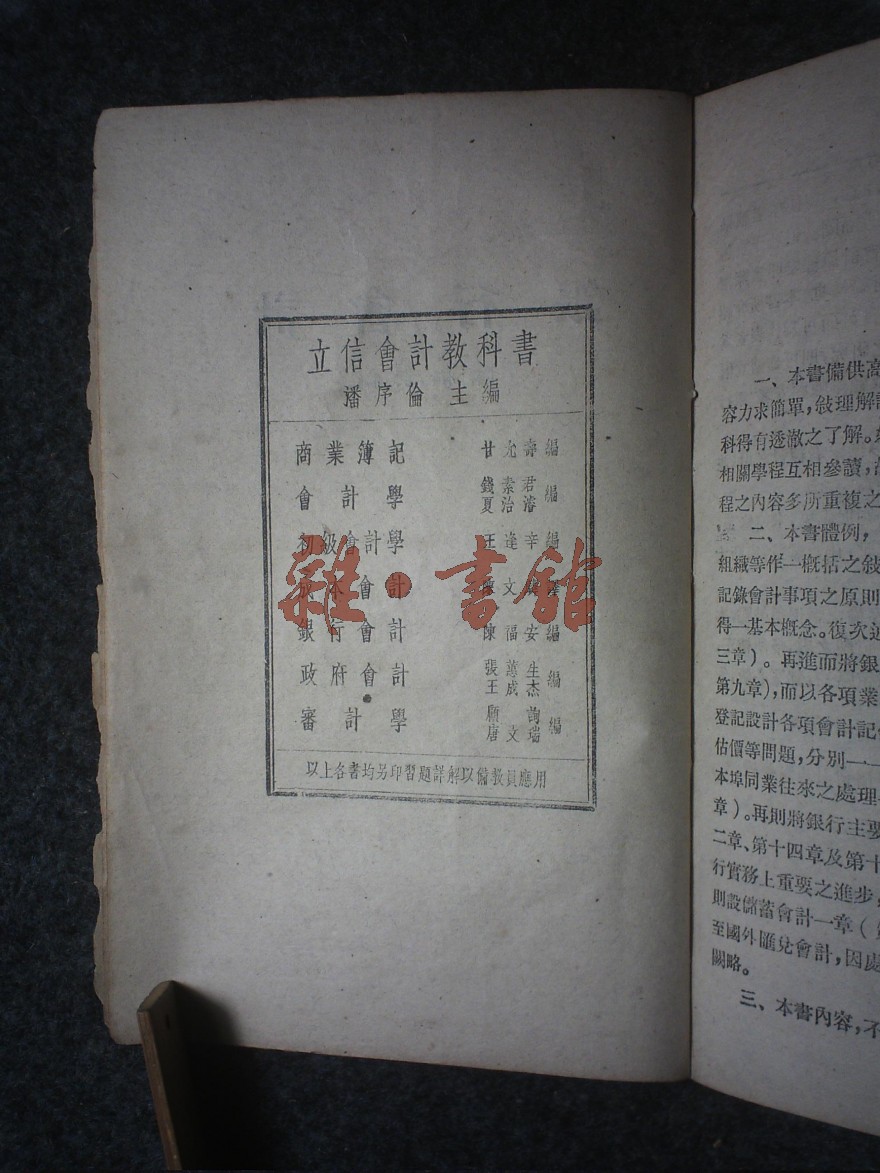 立信會計教科書
潘序倫 主編
商業簿記 甘允壽編
會計學 錢素君 夏治濬 編
初級會計學 王逢辛編
成本會計 陳文麟
銀行會計 陳福安編
政府會計 張蕙生 王成杰 編
審計學 顧詢 唐文瑞 編
以上各書均另印習題詳解以備教員應用
雜·書館
一、本書備供高
容力求簡單，敍理解
科得有透澈之了解。
相關學程互相參讀，
程之內容多所重複之
二、本書體例，
組織等作一概括之敍
記錄會計事項之原則
得一基本概念。復次
三章）。再進而將銀
第九章），而以各項業
登記設計各項會計記
估價等問題，分別一一
本埠同業往來之處理
章）。再則將銀行主要
二章、第十四章及第十
行實務上重要之進步，
則設儲蓄會計一章（
至國外匯兌會計，因處
闕略。
三、本書內容，不